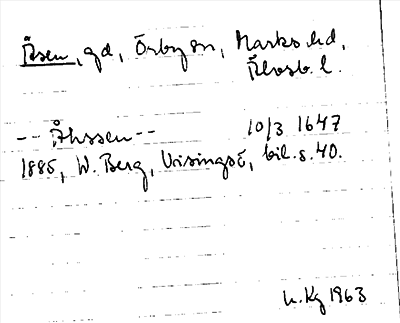 Åsen, gd, Örby sn, Marks hd,
Älvsb. l.
-- Åhssen -- 10/3 1647
1885, W. Berg, Visingsö, bil. s. 40.
1963